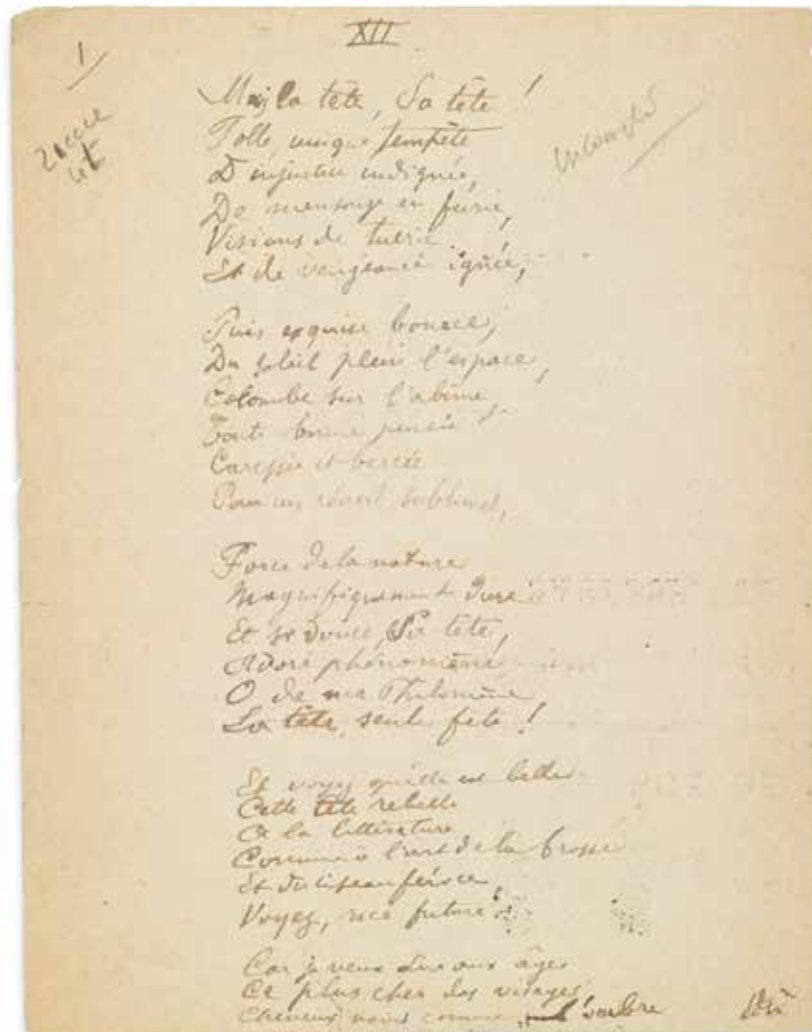 XII
1
incomplet
Mais la tête, la tête !
Folle, unique tempête
D'injustice indignée,
De mensonge en furie,
Visions de tuerie
Et de vengeance ignée,
Puis exquise bonace,
Du soleil plein l'espace,
Colombe sur l'abîme,
Toute bonne pensée
Caressée et bercée
Pour un réveil sublime,
Force de la nature
Magnifiquement dure
Et si douce, Sa tête,
Adoré phénomène
O de ma Philomène
La tête, seule fête !
Et voyez qu'elle est belle
Cette tête rebelle
A la littérature
Comme à l'art de la brosse
Et du ciseau féroce,
Voyez, race future !
Car je veux dire aux âges
Ce plus cher des visages,
Cheveux noirs comme l'ombre